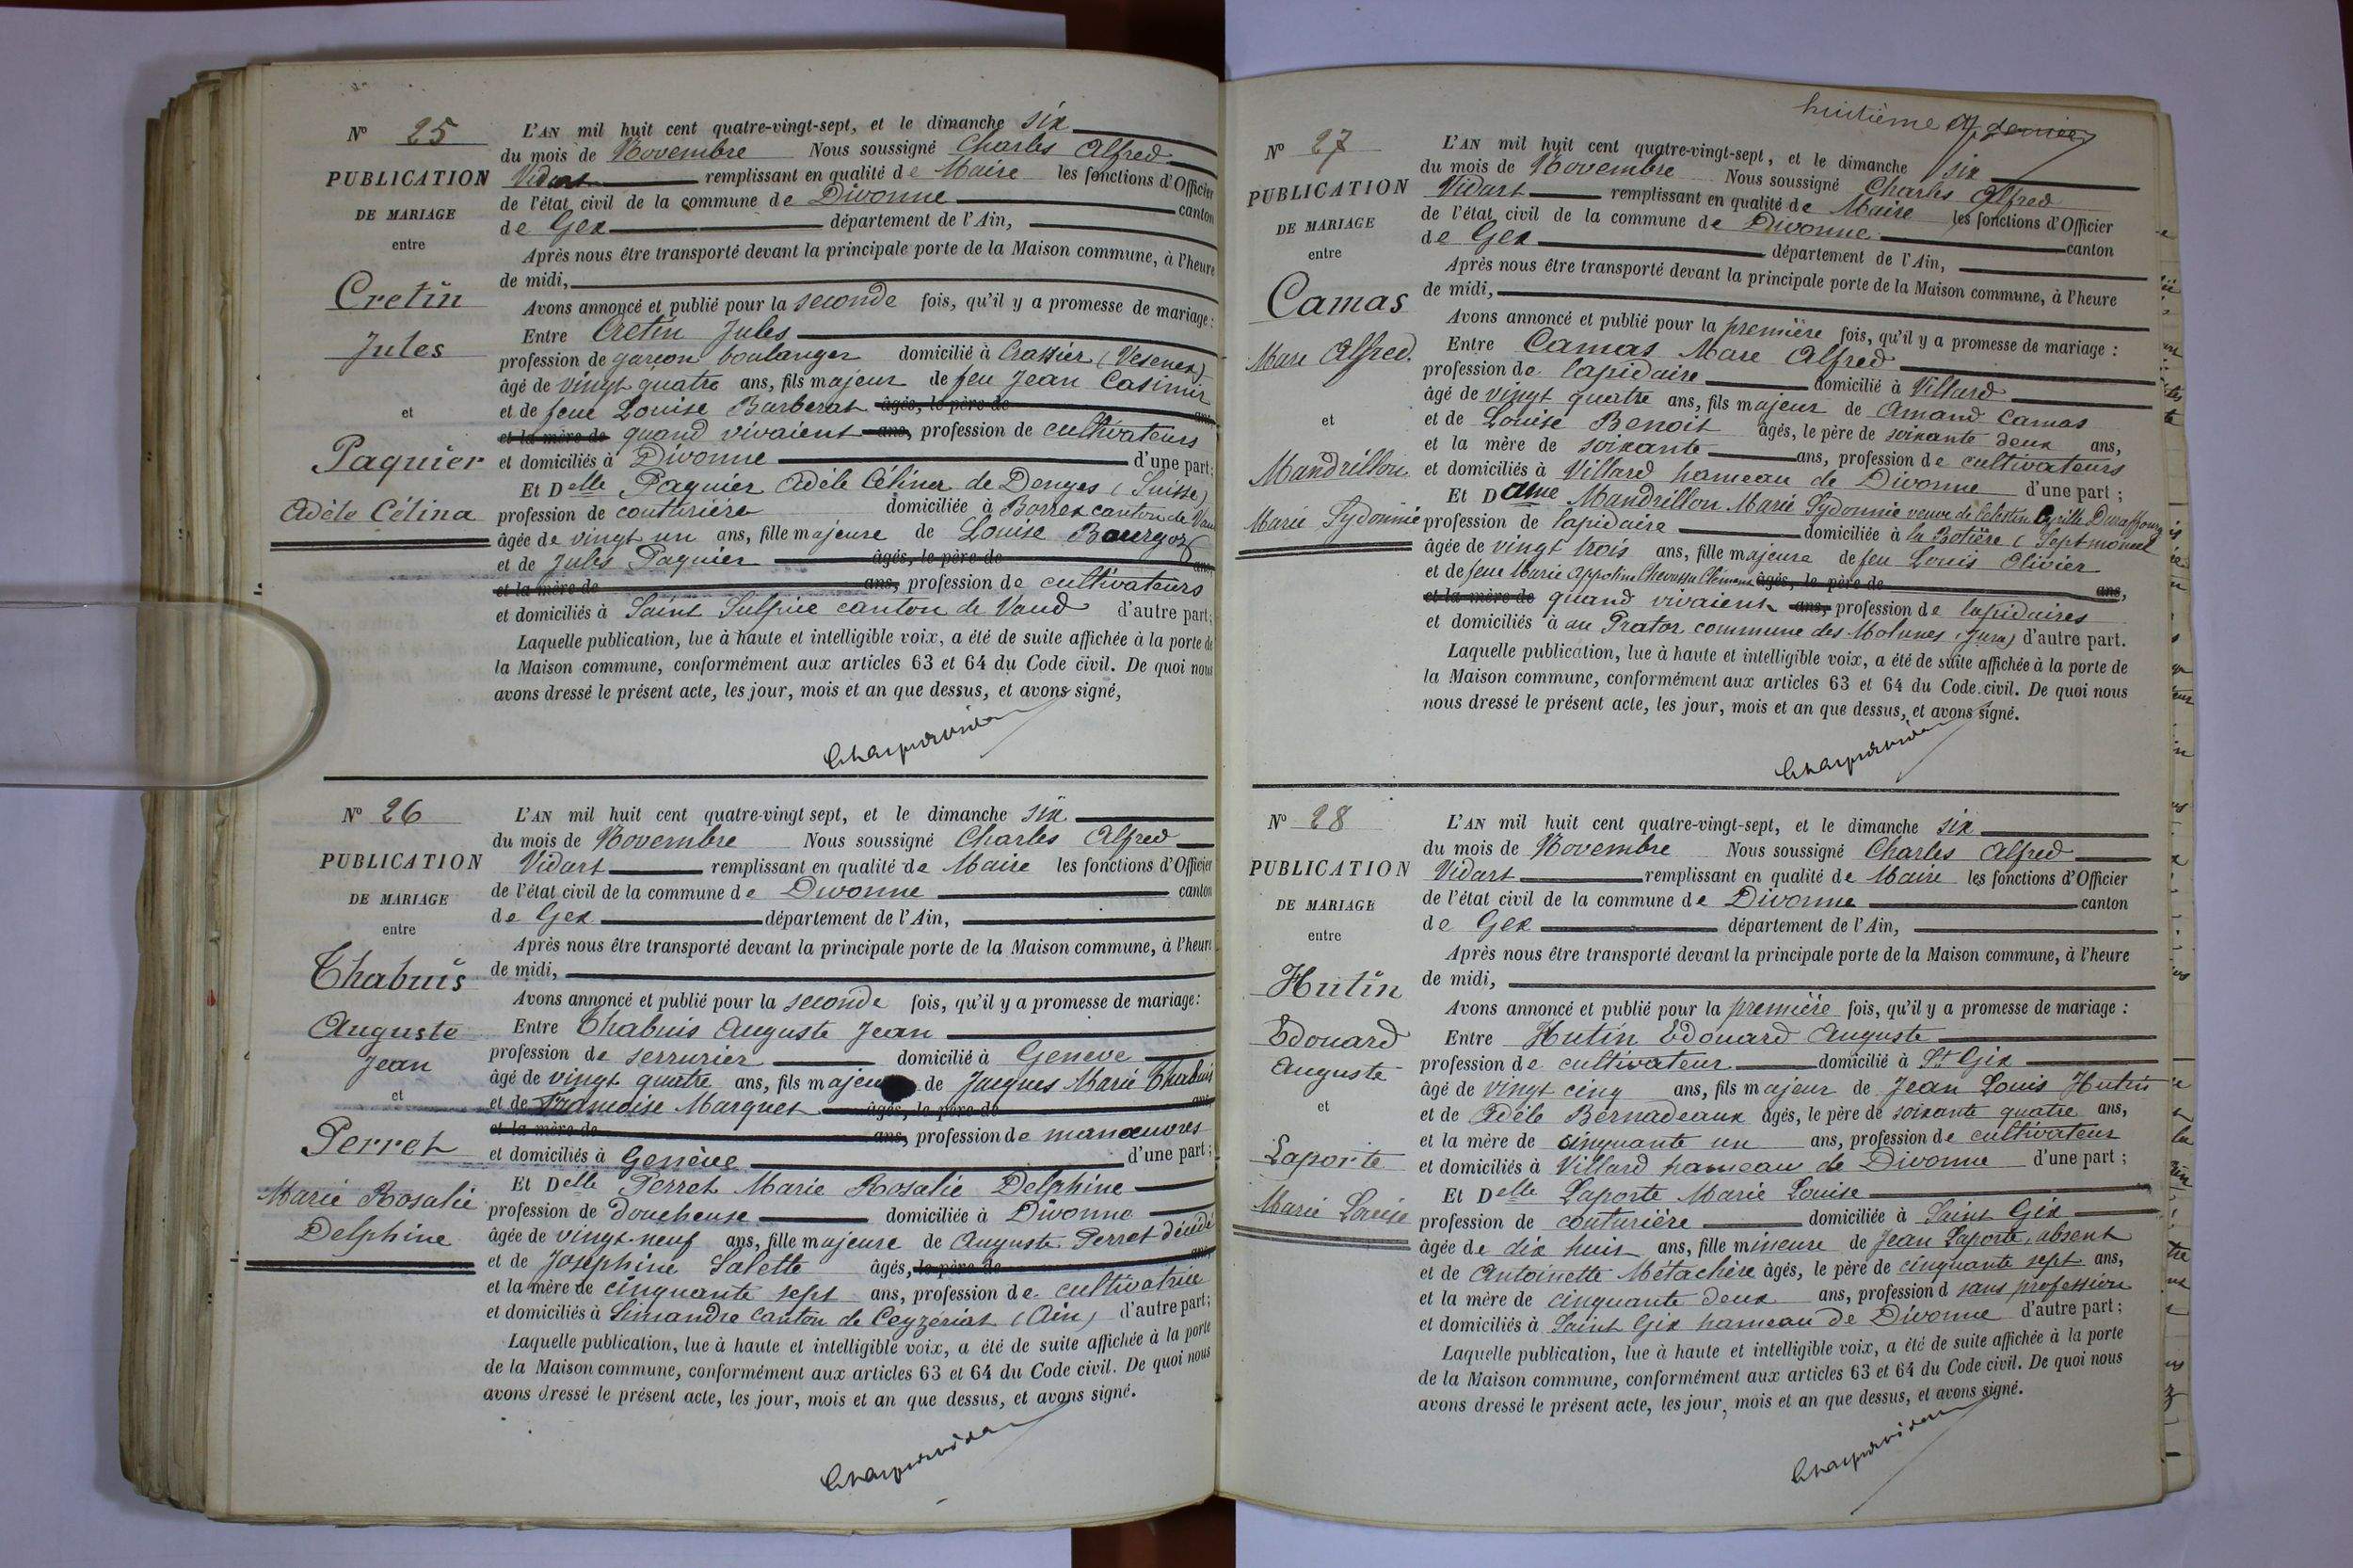 N° 25
PUBLICATION
DE MARIAGE
entre
Cretin
Jules
et
Paquier
Adèle Célina
L'AN mil huit cent quatre-vingt-sept, et le dimanche six
du mois de Novembre Nous soussigné Charles Alfred
Vidart remplissant en qualité de Maire les fonctions d'Officier
de l'état civil de la commune de Divonne canton
de Gex département de l'Ain,
Après nous être transporté devant la principale porte de la Maison commune, à l'heure
de midi,
Avons annoncé et publié pour la seconde fois, qu'il y a promesse de mariage :
Entre Cretin Jules
profession de garçon boulanger domicilié à Crassier (Vesenex)
âgé de vingt quatre ans, fils majeur de feu Jean Casimir
et de feue Louise Barberat âgés, le père de ans,
et la mère de quand vivaient ans, profession de cultivateurs
et domiciliés à Divonne d'une part ;
Et Delle Paquier Adèle Célina de Denges (Suisse)
profession de couturière domiciliée à Borrex canton de Vaud
âgée de vingt un ans, fille majeure de Louise Bourgoz
et de Jules Paquier âgés, le père de ans,
et la mère de ans, profession de cultivateurs
et domiciliés à Saint Sulpice canton de Vaud d'autre part ;
Laquelle publication, lue à haute et intelligible voix, a été de suite affichée à la porte de
la Maison commune, conformément aux articles 63 et 64 du Code civil. De quoi nous
avons dressé le présent acte, les jour, mois et an que dessus, et avons signé,
N° 26
PUBLICATION
DE MARIAGE
entre
Chabuis
Auguste
Jean
et
Perret
Marie Rosalie
Delphine
L'AN mil huit cent quatre-vingt sept, et le dimanche six
du mois de Novembre Nous soussigné Charles Alfred
Vidart remplissant en qualité de Maire les fonctions d'Officier
de l'état civil de la commune de Divonne canton
de Gex département de l'Ain,
Après nous être transporté devant la principale porte de la Maison commune, à l'heure
de midi,
Avons annoncé et publié pour la seconde fois, qu'il y a promesse de mariage :
Entre Chabuis Auguste Jean
profession de serrurier domicilié à Geneve
âgé de vingt quatre ans, fils majeur de Jacques Marie Chabuis
et de Francoise Marquet âgés, le père de ans,
et la mère de ans, profession de manœuvres
et domiciliés à Genève d'une part ;
Et Delle Perret Marie Rosalie Delphine
profession de doucheuse domiciliée à Divonne
âgée de vingt-neuf ans, fille majeure de Auguste Perret décédé
et de Joséphine Salette âgés, le père de ans,
et la mère de cinquante sept ans, profession de cultivatrice
et domiciliés à Simandre canton de Ceyzériat (Ain) d'autre part ;
Laquelle publication, lue à haute et intelligible voix, a été de suite affichée à la porte
de la Maison commune, conformément aux articles 63 et 64 du Code civil. De quoi nous
avons dressé le présent acte, les jour, mois et an que dessus, et avons signé.
huitième et dernier
N° 27
PUBLICATION
DE MARIAGE
entre
Camas
Marc Alfred.
et
Mandrillon
Marie Sydonnie
L'AN mil huit cent quatre-vingt-sept, et le dimanche six
du mois de Novembre Nous soussigné Charles Alfred
Vidart remplissant en qualité de Maire les fonctions d'Officier
de l'état civil de la commune de Divonne canton
de Gex département de l'Ain,
Après nous être transporté devant la principale porte de la Maison commune, à l'heure
de midi,
Avons annoncé et publié pour la première fois, qu'il y a promesse de mariage :
Entre Camas Marc Alfred
profession de lapidaire domicilié à Villard
âgé de vingt quatre ans, fils majeur de Amand Camas
et de Louise Benoit âgés, le père de soixante deux ans,
et la mère de soixante ans, profession de cultivateurs
et domiciliés à Villard hameau de Divonne d'une part ;
Et Dame Mandrillon Marie Sydonnie veuve de Célestin Cyrille Duraffourg
profession de lapidaire domiciliée à la Botière (Septmoncel
âgée de vingt trois ans, fille majeure de feu Louis Olivier
et de feue Marie Appoline Chevassu Clément âgés, le père de ans,
et la mère de quand vivaient ans, profession de lapidaires
et domiciliés à au Prator commune des Molunes (Jura) d'autre part.
Laquelle publication, lue à haute et intelligible voix, a été de suite affichée à la porte de
la Maison commune, conformément aux articles 63 et 64 du Code civil. De quoi nous
nous dressé le présent acte, les jour, mois et an que dessus, et avons signé.
N° 28
PUBLICATION
DE MARIAGE
entre
Hutin
Edouard
Auguste
et
Laporte
Marie Louise
L'AN mil huit cent quatre-vingt-sept, et le dimanche six
du mois de Novembre Nous soussigné Charles Alfred
Vidart remplissant en qualité de Maire les fonctions d'Officier
de l'état civil de la commune de Divonne canton
de Gex département de l'Ain,
Après nous être transporté devant la principale porte de la Maison commune, à l'heure
de midi,
Avons annoncé et publié pour la première fois, qu'il y a promesse de mariage :
Entre Hutin Edouard Auguste
profession de cultivateur domicilié à St Gix
âgé de vingt cinq ans, fils majeur de Jean Louis Hutin
et de Adèle Bernadeaux âgés, le père de soixante quatre ans,
et la mère de cinquante un ans, profession de cultivateur
et domiciliés à Villard hameau de Divonne d'une part ;
Et Delle Laporte Marie Louise
profession de couturière domiciliée à Saint Gix
âgée de dix huit ans, fille mineure de Jean Laporte, absent
et de Antoinette Métachère âgés, le père de cinquante sept ans,
et la mère de cinquante deux ans, profession d sans profession
et domiciliés à Saint Gix hameau de Divonne d'autre part ;
Laquelle publication, lue à haute et intelligible voix, a été de suite affichée à la porte
de la Maison commune, conformément aux articles 63 et 64 du Code civil. De quoi nous
avons dressé le présent acte, les jour, mois et an que dessus, et avons signé.